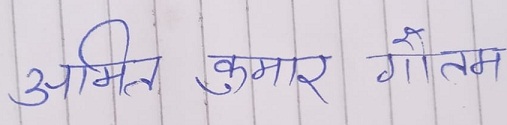 अमित कुमार गौतम